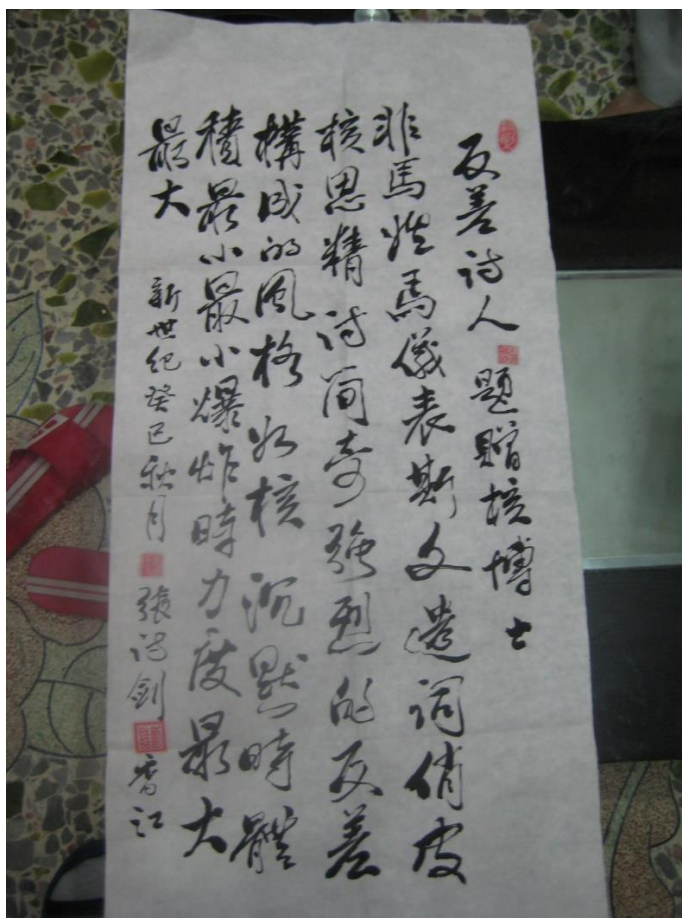 反差诗人 题赠核博士
非马姓马儀表斯文遣词俏皮
核思精诗简奇强烈的反差
構成的風格如核 沉默時體
積最小最小爆炸時力度最大
最大
新世纪癸巳秋月 張诗剑 香江